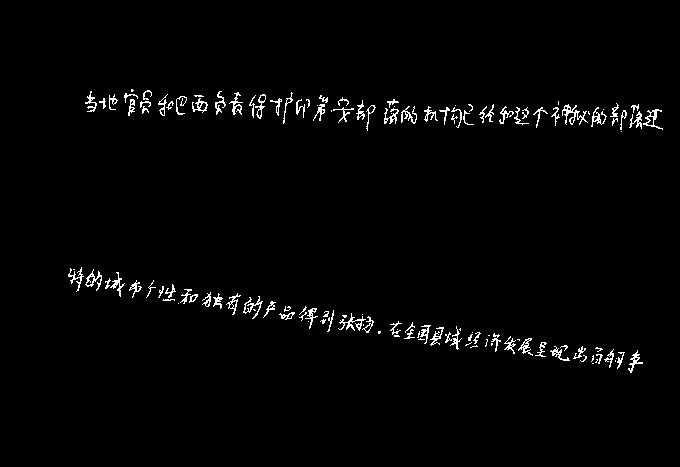 当地官员和巴西负责保护印第安部落的机构已经和这个神秘的部落进
特的城市个性和独有的产品得到张扬。在全国县域经济发展呈现出百舸争